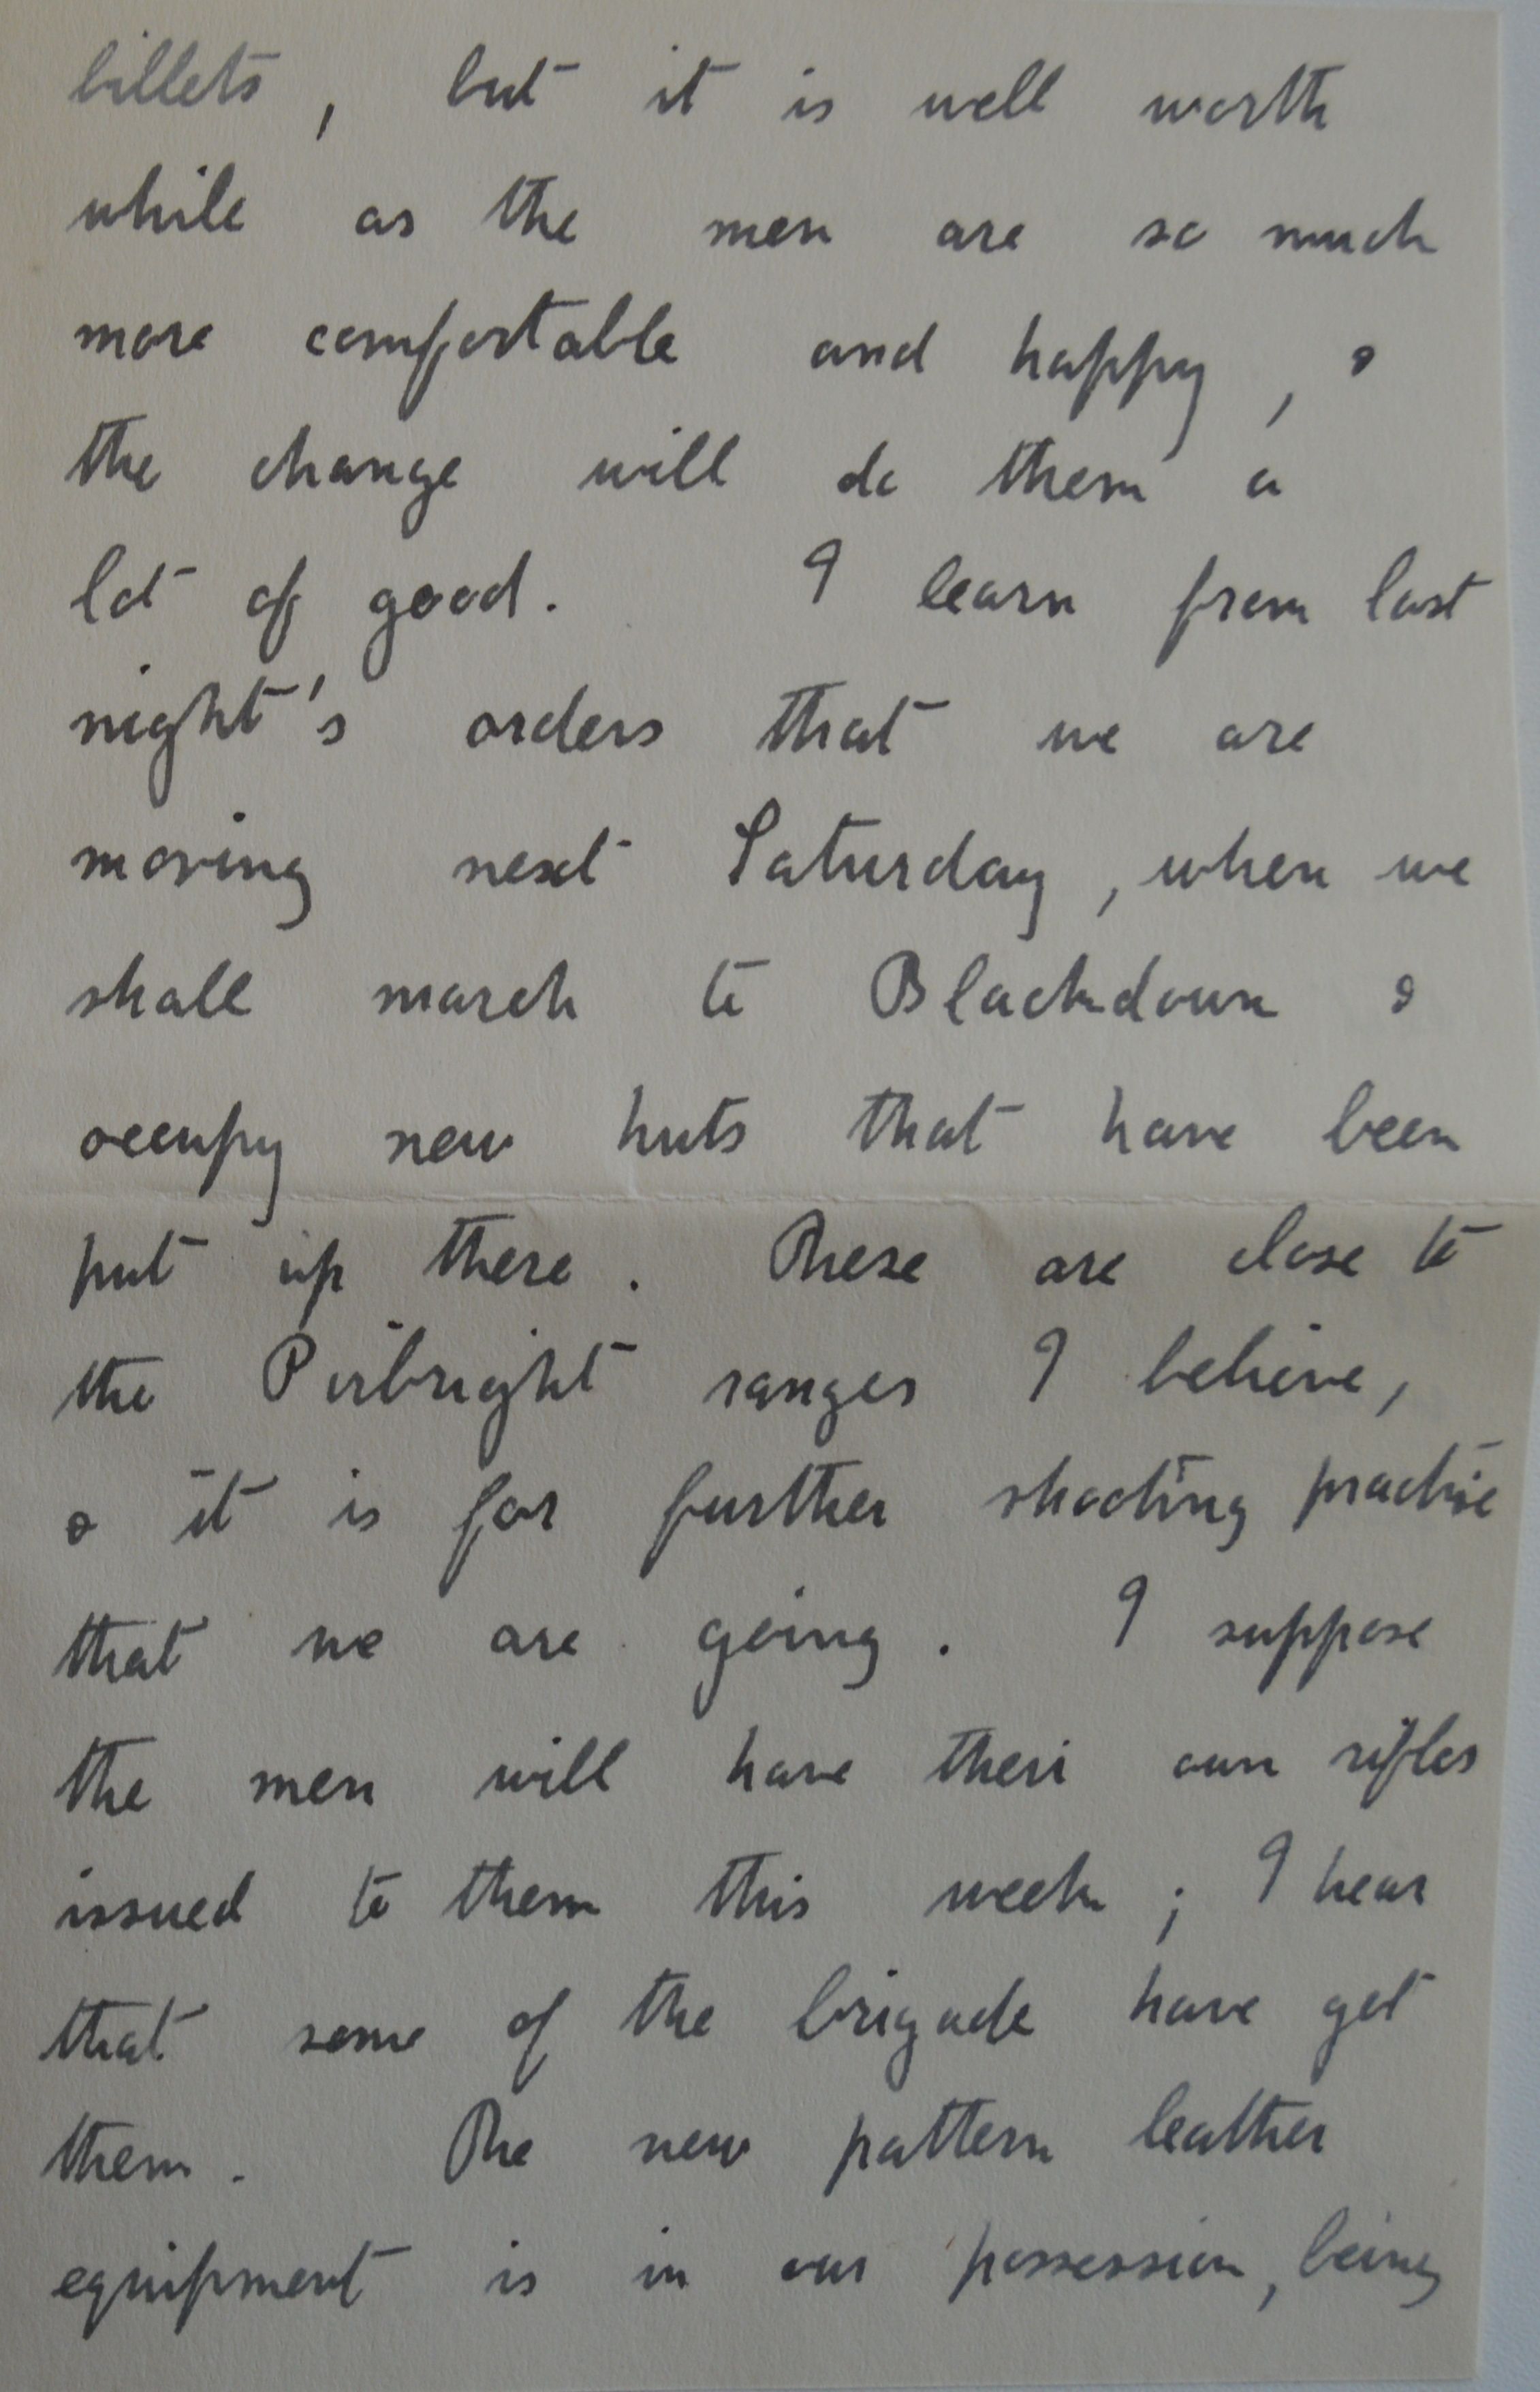 billets, but it is well worth
while as the men are so much
more comfortable and happy, &
the change will do them a
lot of good. I learn from last
night's orders that we are
moving next Saturday, when we
shall march to Blackdown &
occupy new huts that have been
put up there. These are close to
the Pirbright ranges I believe,
& it is for further shooting practise
that we are going. I suppose
the men will have their own rifles
issued to them this week; I hear
that some of the brigade have got
them. The new pattern leather
equipment is in our possession, being